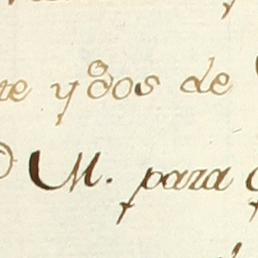 te y dos de
M. para